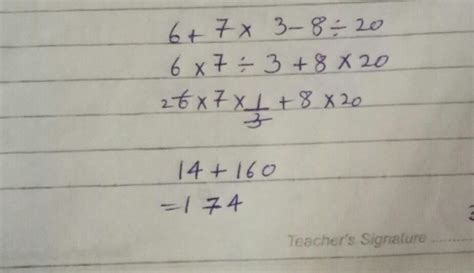 6 + 7 × 3 - 8 ÷ 20
6 × 7 ÷ 3 + 8 × 20
2 6 × 7 × 1/3 + 8 × 20
14 + 160
= 174
Teacher's Signature ..........